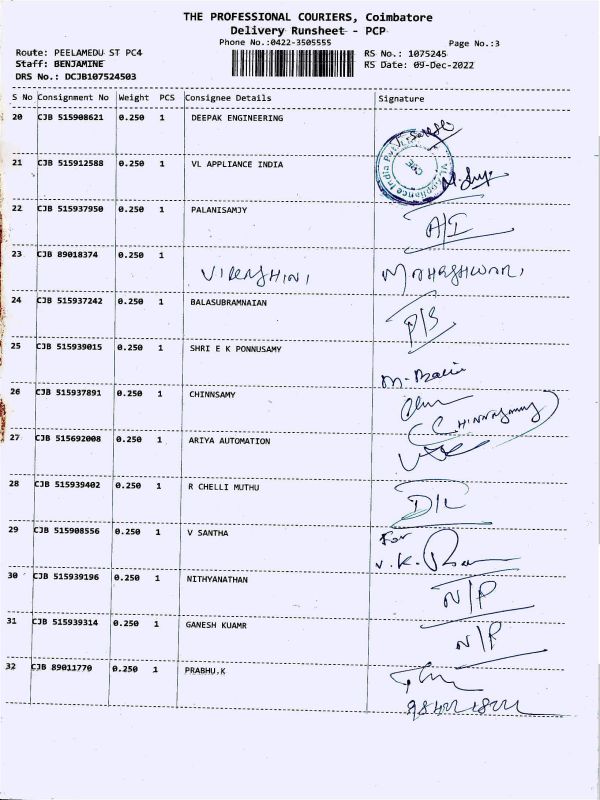 THE PROFESSIONAL COURIERS, Coimbatore
Delivery Runsheet - PCP
Phone No.:0422-3505555
Page No.:3
Route: PEELAMEDU ST PC4
RS No.: 1075245
Staff: BENJAMINE
RS Date: 09-Dec-2022
DRS No.: DCJB107524503
S No Consignment No Weight PCS Consignee Details Signature
20 CJB 515908621 0.250 1 DEEPAK ENGINEERING
21 CJB 515912588 0.250 1 VL APPLIANCE INDIA
VL Appliance India Pvt
22 CJB 515937950 0.250 1 PALANISAMJY A/I
23 CJB 89018374 0.250 1 MAHESHWARI
24 CJB 515937242 0.250 1 BALASUBRAMNAIAN P/B
25 CJB 515939015 0.250 1 SHRI E K PONNUSAMY
26 CJB 515937891 0.250 1 CHINNSAMY
27 CJB 515692008 0.250 1 ARIYA AUTOMATION
28 CJB 515939402 0.250 1 R CHELLI MUTHU D/L
29 CJB 515908556 0.250 1 V SANTHA For
30 CJB 515939196 0.250 1 NITHYANATHAN N/P
31 CJB 515939314 0.250 1 GANESH KUAMR N/P
32 CJB 89011770 0.250 1 PRABHU.K